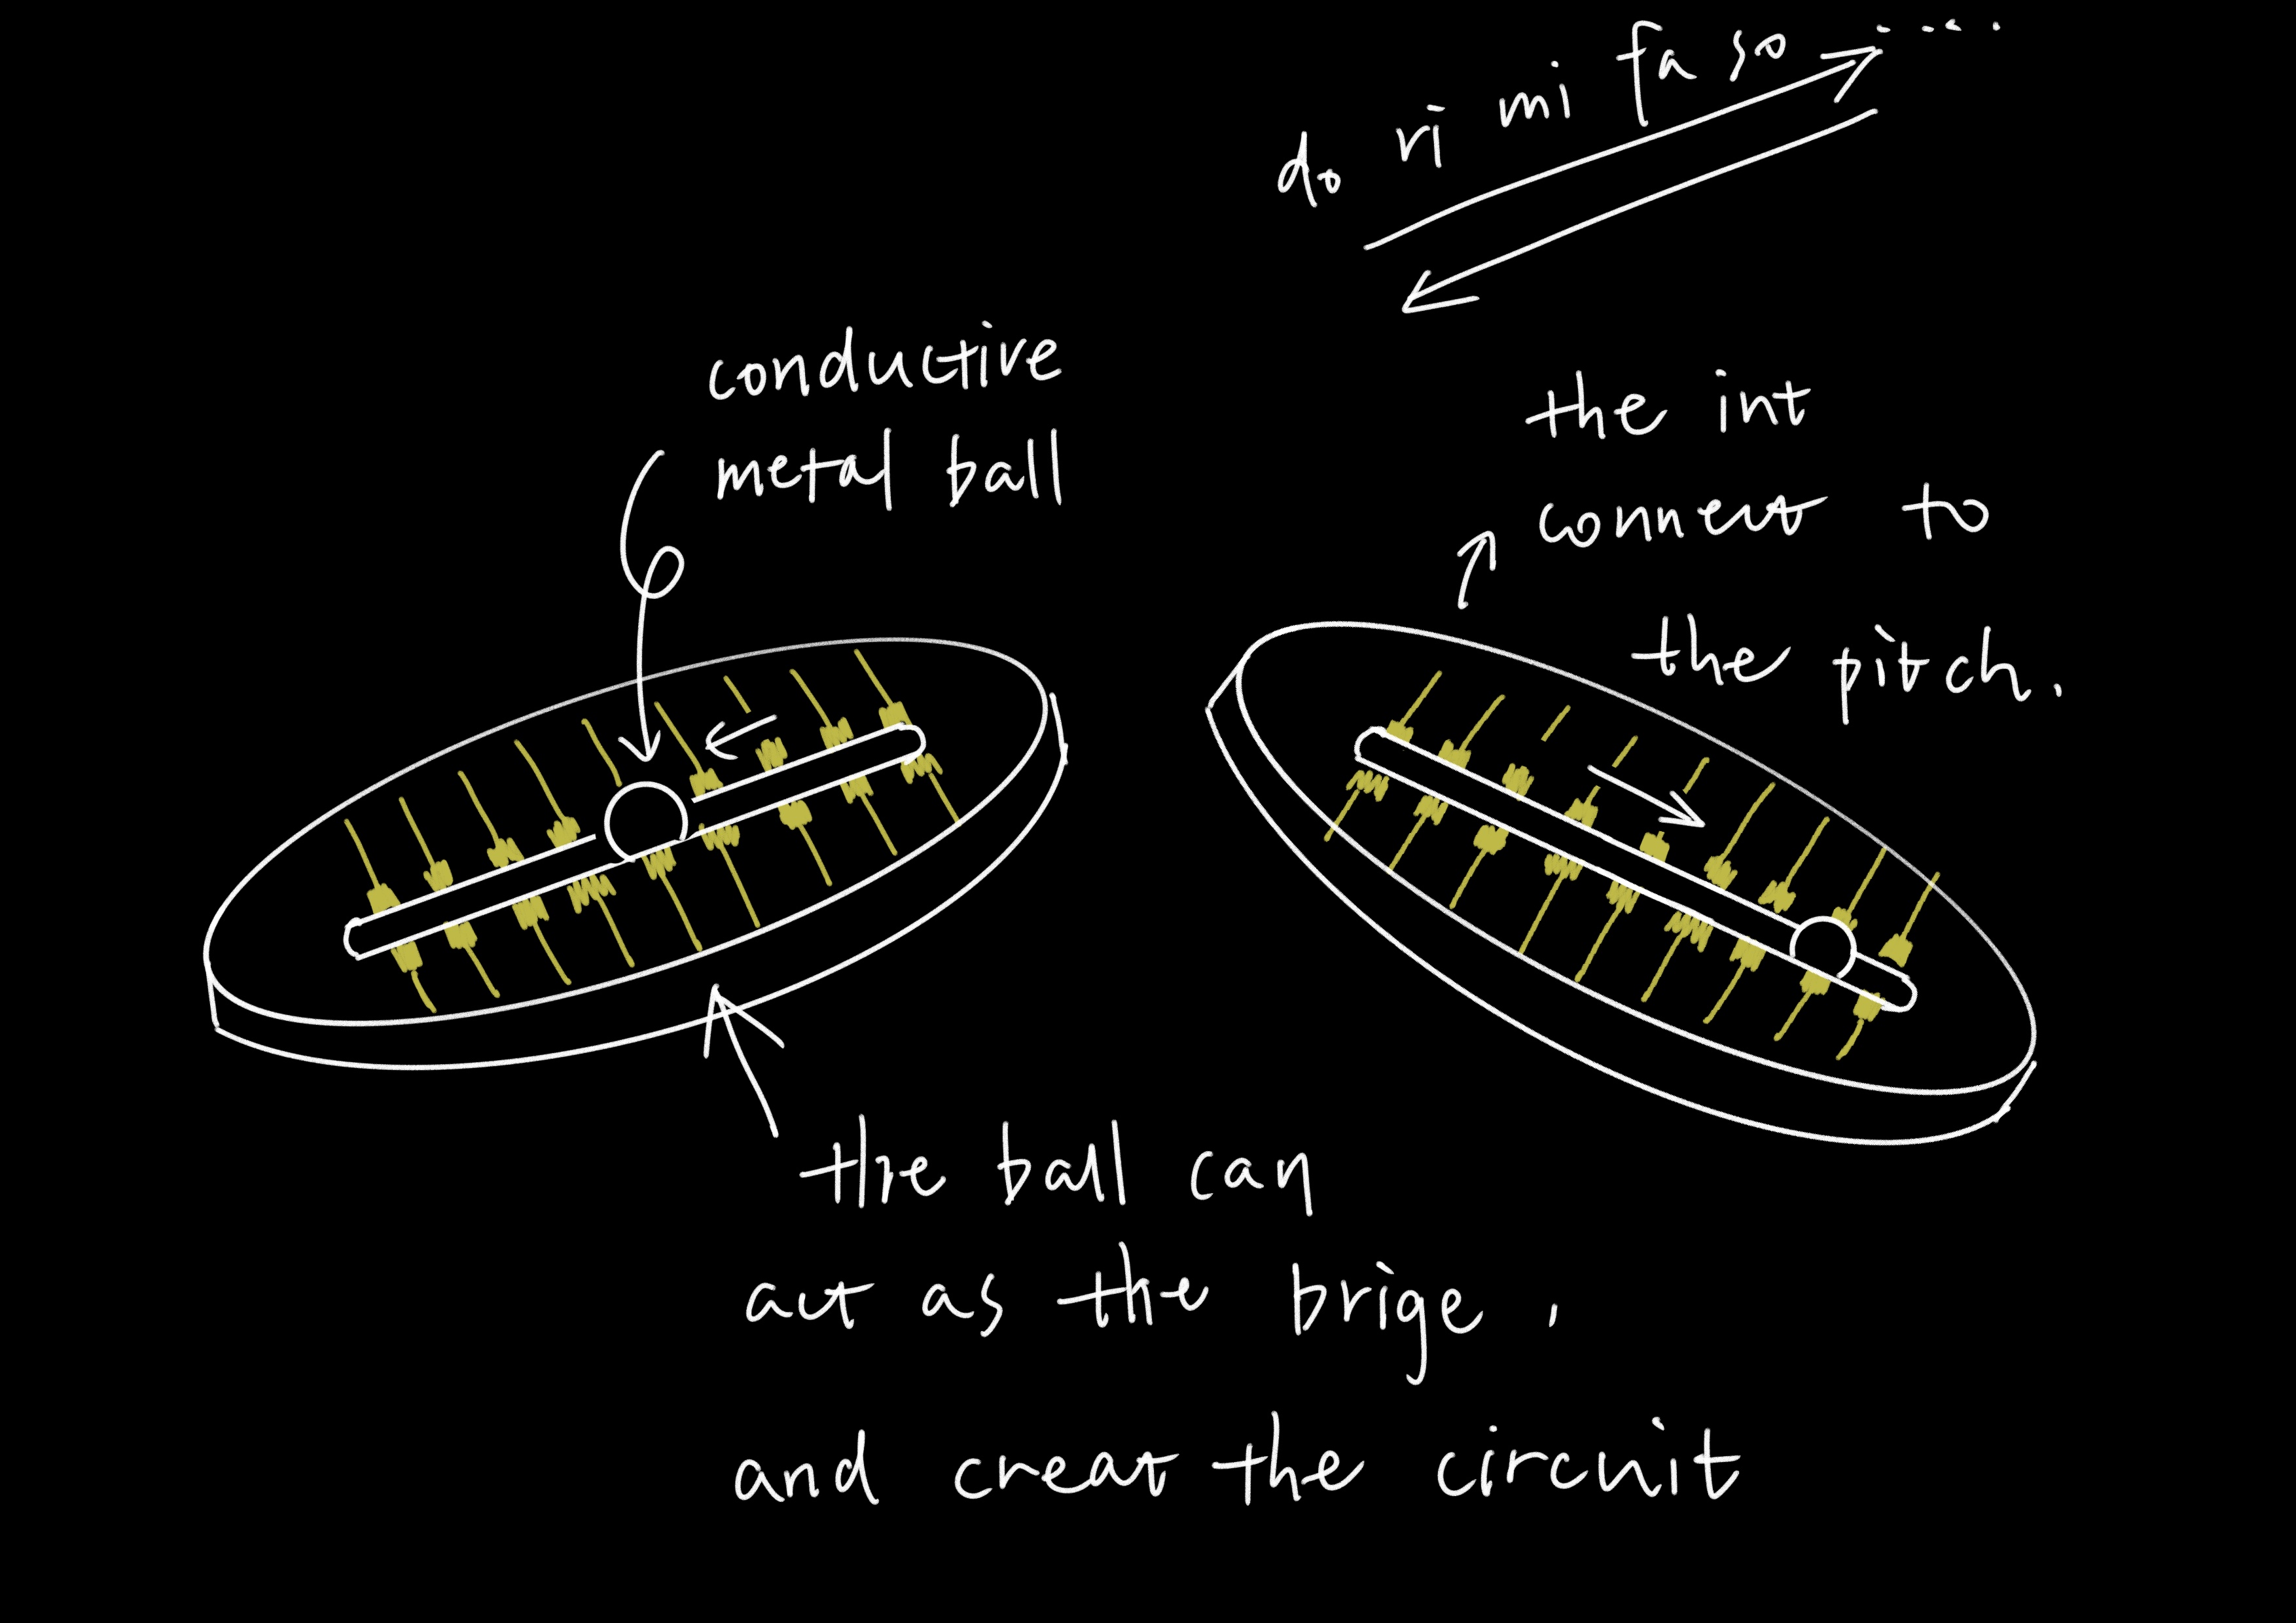 do ri mi fa so ....
conductive
metal ball
the int
connect to
the pitch.
the ball can
act as the brige ,
and creat the circuit